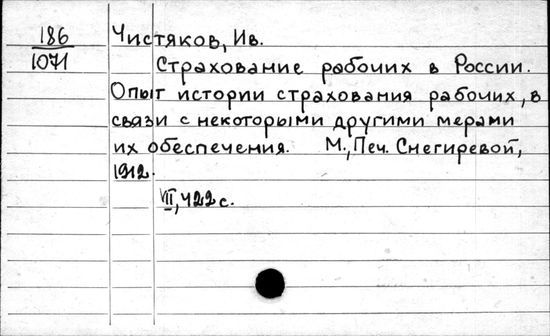 186
1071
Чистяков, Ив.
Страхование рабочих в России.
Опыт истории страхования рабочих, в
связи с некоторыми другими мерами
их обеспечения. М., Печ. Снегиревой,
1912.
VII, 422 с.